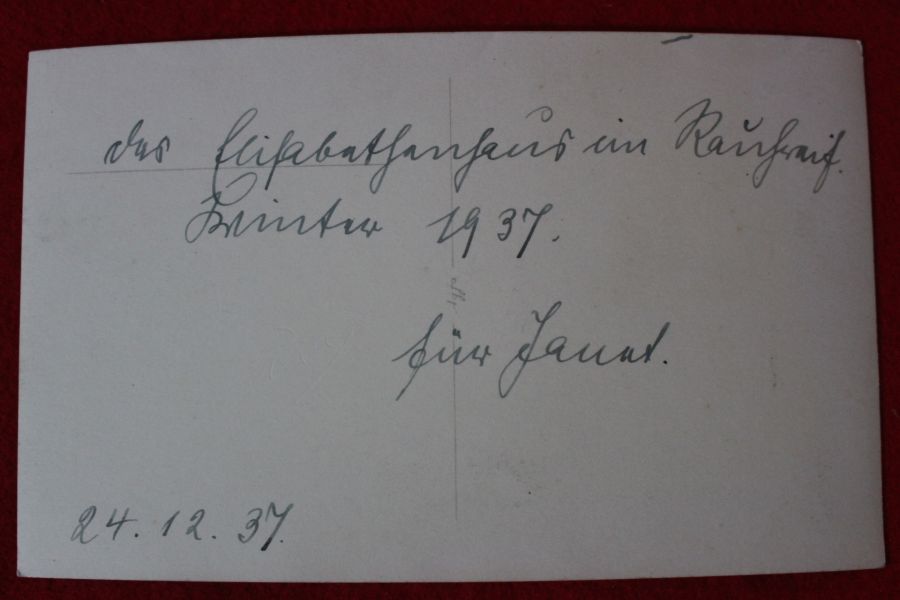 das Elisabethenhaus im Rauhreif.
Winter 1937.
für Janet.
24.12.37.